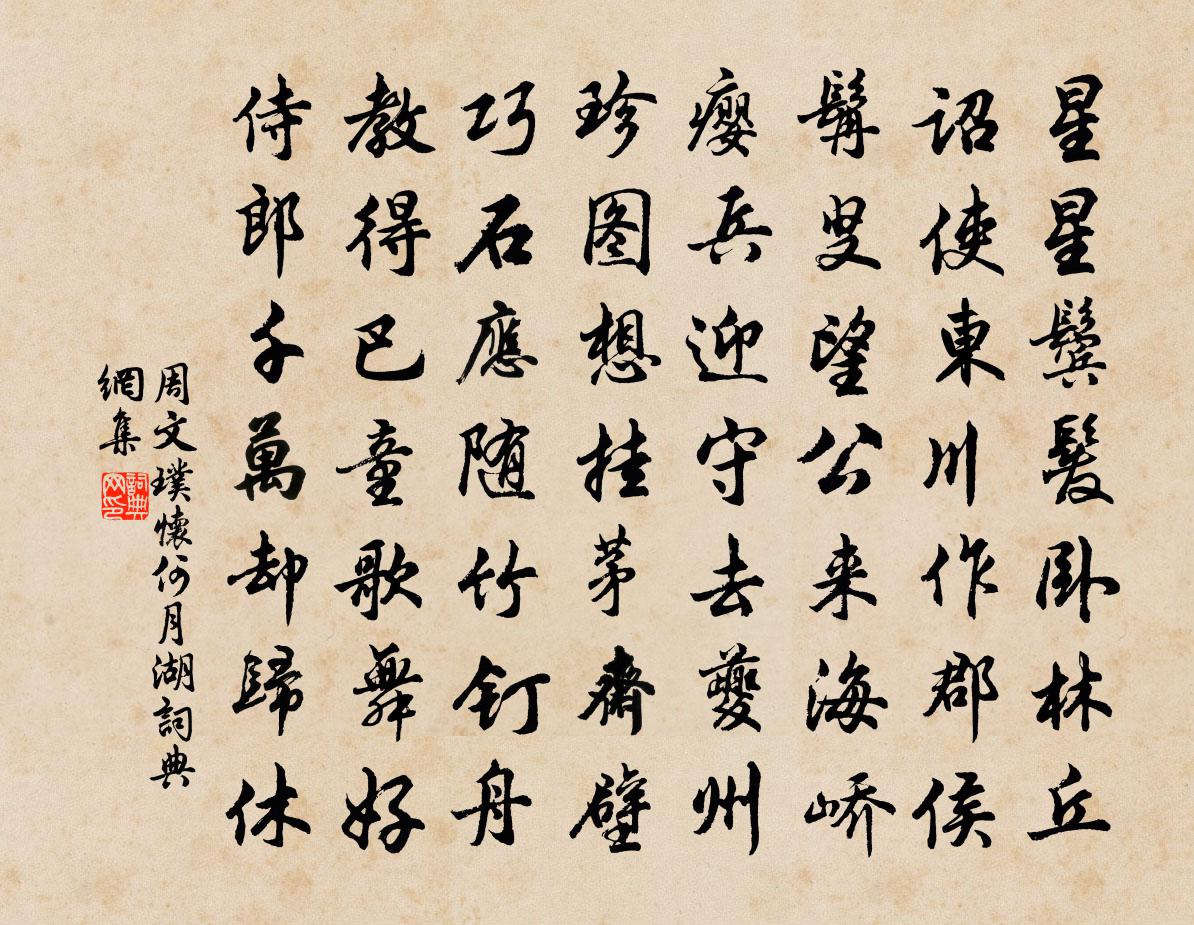 星星鬢髮卧林丘
詔使東川作郡侯
髯叟望公来海嶠
癭兵迎守去夔州
珍图想挂茅齋壁
巧石應随竹釘舟
教得巴童歌舞好
侍郎千萬却歸休
周文璞懷何月湖詞典
網集
詞典网印